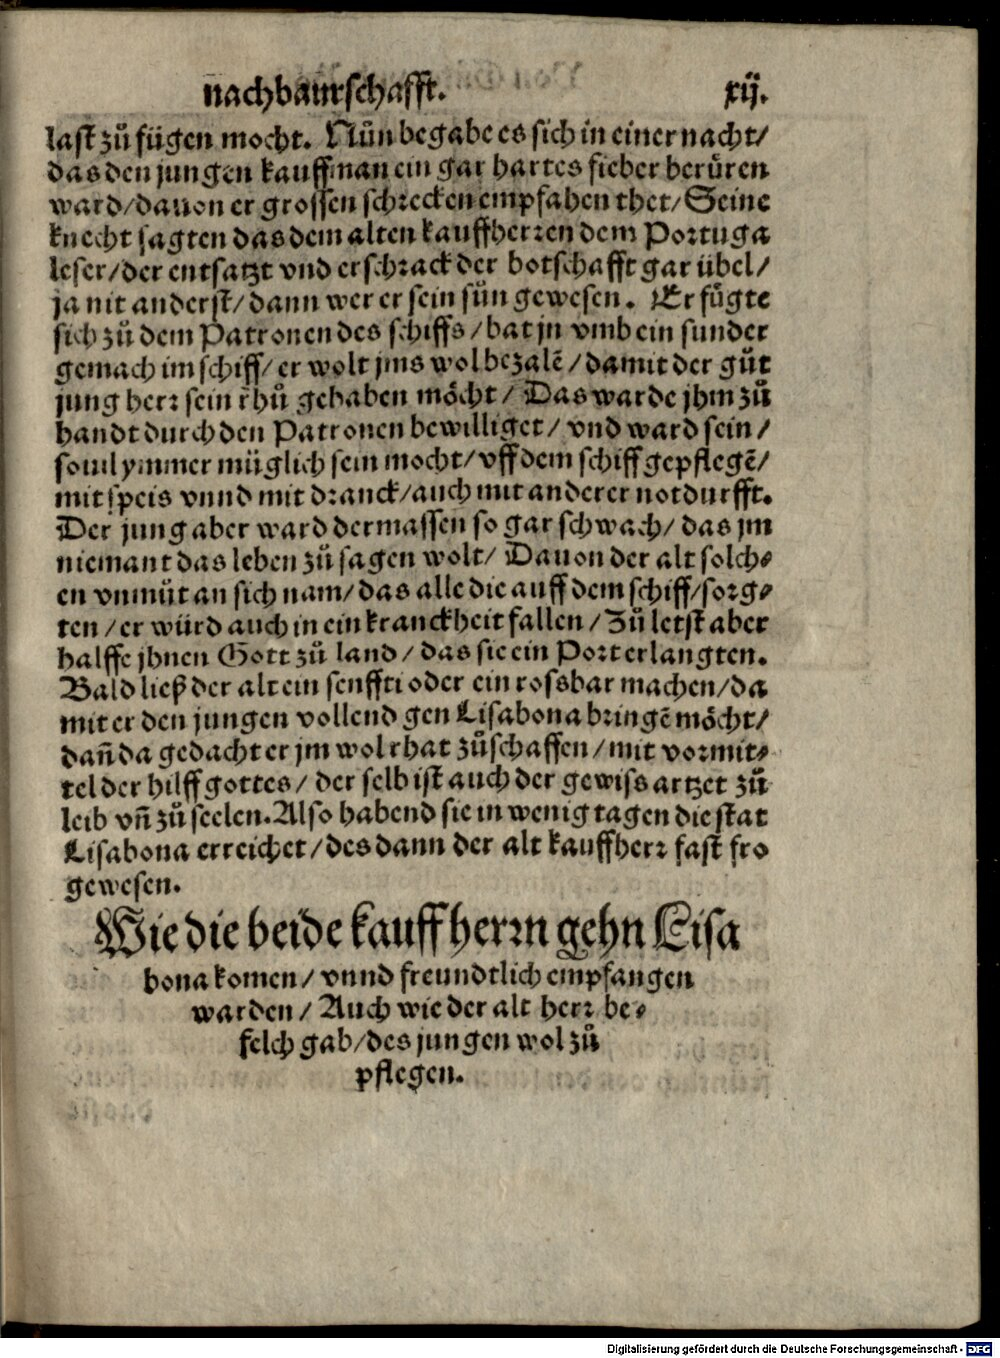 nachbaurschafft. xij.
last zuͦ fügen mocht. Nuͦn begabe es sich in einer nacht/
das den jungen kauffman ein gar hartes fieber beruͤren
ward/dauon er grossen schrecken empfahen thet/Seine
knecht sagten das dem alten kauffherren dem Portuga
leser/der entsatzt vnd erschrack der botschafft gar übel/
ja nit anderst/dann wer er sein sün gewesen. Er fuͤgte
sich zuͦ dem Patronen des schiffs/bat jn vmb ein sunder
gemach im schiff/er wolt jms wol bezalē/damit der guͦt
jung herr sein rhuͦ gehaben moͤcht/Das warde jhm zuͦ
handt durch den Patronen bewilliget/vnd ward sein/
souil ymmer müglich sein mocht/vff dem schiff gepflegē/
mit speis vnnd mit dranck/auch mit anderer notdurfft.
Der jung aber ward dermassen so gar schwach/das jm
niemant das leben zuͦ sagen wolt/Dauon der alt solch⸗
en vnmuͦt an sich nam/das alle die auff dem schiff/sorg⸗
ten/er würd auch in ein kranckheit fallen/Zuͦ letst aber
halffe jhnen Gott zuͦ land/das sie ein Port erlangten.
Bald ließ der alt ein senffti oder ein rossbar machen/da
mit er den jungen vollend gen Lisabona bringē moͤcht/
dañ da gedacht er jm wol rhat zuͦschaffen/mit vormit⸗
tel der hilff gottes/der selb ist auch der gewiss artzet zuͦ
leib vñ zuͦ seelen. Also habend sie in wenig tagen die stat
Lisabona erreichet/des dann der alt kauffherr fast fro
gewesen.
Wie die beide kauffherrn gehn Lisa
bona komen/vnnd freundtlich empfangen
warden/Auch wie der alt herr be⸗
felch gab/des jungen wol zuͦ
pflegen.
Digitalisierung gefördert durch die Deutsche Forschungsgemeinschaft - DFG